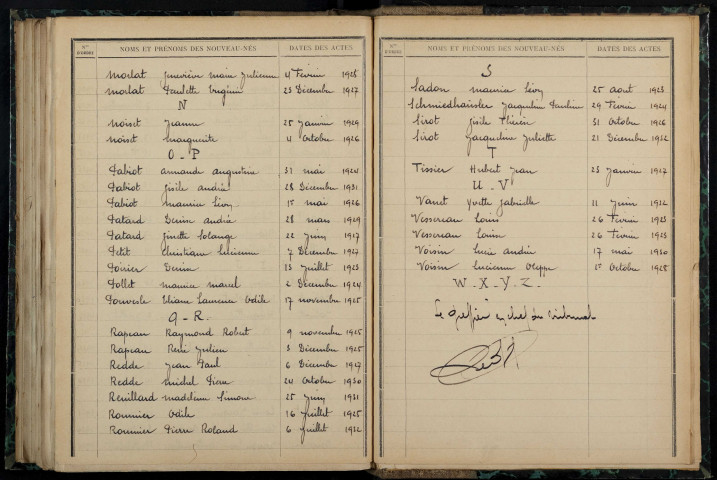 Nos D'ORDRE NOMS ET PRÉNOMS DES NOUVEAU-NÉS DATES DES ACTES
Morlat Geneviève Marie Julienne 4 Février 1928
Morlat Paulette Virginie 23 Décembre 1927
N
Noiset Jeanne 25 Janvier 1929
Noiset Marguerite 4 Octobre 1926
O - P
Pabiot Armande Augustine 31 Mai 1924
Pabiot Gisèle Andrée 28 Décembre 1931
Pabiot Maurice Léon 1er Mai 1926
Patard Denise Andrée 28 Mars 1929
Patard Ginette Solange 22 Juin 1927
Petit Christiane Lucienne 7 Décembre 1927
Poirier Denise 13 Juillet 1923
Pollet Maurice Marcel 2 Décembre 1924
Pouvesle Eliane Laurence Odile 17 Novembre 1925
Q - R
Rapeau Raymond Robert 9 Novembre 1925
Rapeau René Julien 3 Décembre 1925
Redde Jean Paul 6 Décembre 1927
Redde Michel Pierre 24 Octobre 1930
Reuillard Madeleine Simone 25 Juin 1931
Roumier Odile 16 Juillet 1925
Roumier Pierre Roland 6 Juillet 1932
Nos D'ORDRE NOMS ET PRÉNOMS DES NOUVEAU-NÉS DATES DES ACTES
S
Sadon Maurice Léon 25 Août 1923
Schmiedhäusler Jacqueline Pauline 29 Février 1924
Sirot Gisèle Thérèse 31 Octobre 1926
Sirot Jacqueline Juliette 21 Décembre 1932
T
Tissier Hubert Jean 23 Janvier 1927
U - V
Vanet Yvette Gabrielle 11 Juin 1932
Vessereau Louis 26 Février 1923
Vessereau Louise 26 Février 1923
Voisin Lucie Andrée 17 Mai 1930
Voisin Lucienne 1er Octobre 1928
W - X - Y - Z -
Le Greffier en chef du Tribunal